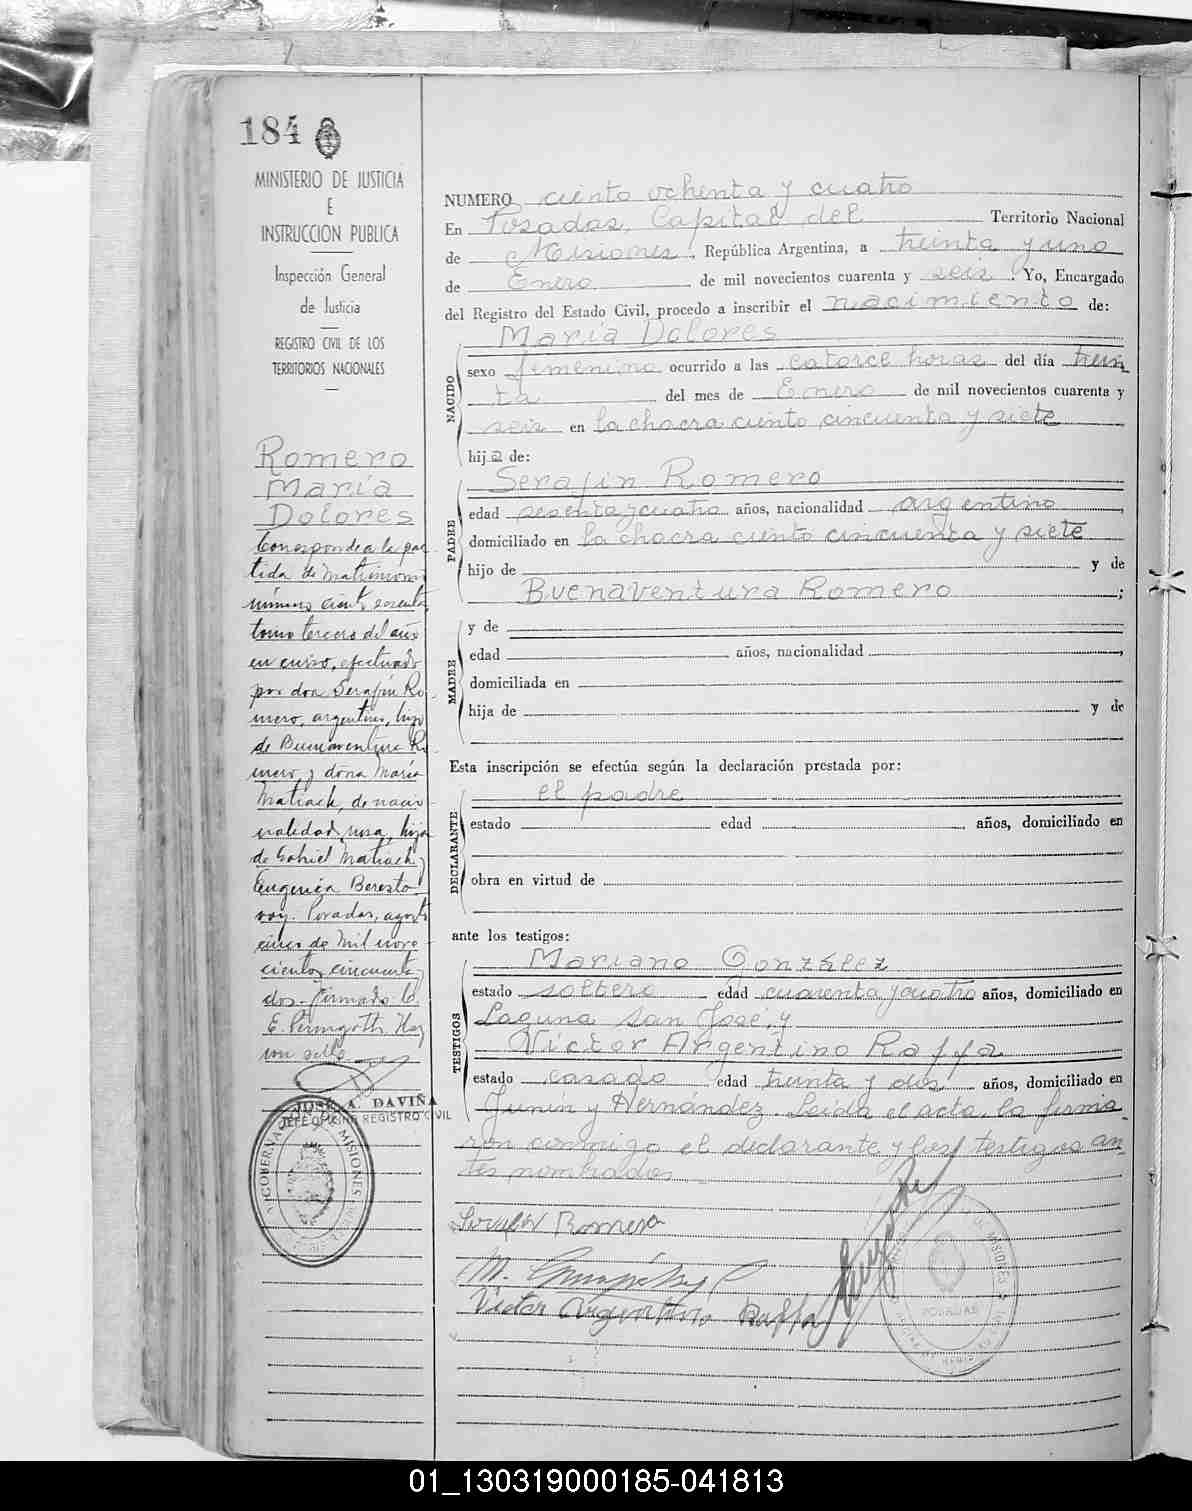 184
MINISTERIO DE JUSTICIA
E
INSTRUCCION PUBLICA
Inspección General
de Justicia
REGISTRO CIVIL DE LOS
TERRITORIOS NACIONALES
Romero
María
Dolores
Corresponde a la par-
tida de matrimonio
número ciento sesenta,
tomo tercero del año
en curso, efectuado
por don Serafín Ro-
mero, argentino, hijo
de Buenaventura Ro-
mero y doña María
Matiach, de nacio-
nalidad rusa, hija
de Gabriel Matiach y
Eugenia Beresto-
voy. Posadas, agosto
cinco de mil nove-
cientos cincuenta y
dos. firmado
E. Hay
un sello
JOSÉ A. DAVIÑA
JEFE OFICINA REGISTRO CIVIL
GOBERNA MISIONES
NUMERO ciento ochenta y cuatro
En Posadas, Capital del Territorio Nacional
de Misiones, República Argentina, a treinta y uno
de Enero de mil novecientos cuarenta y seis. Yo, Encargado
del Registro del Estado Civil, procedo a inscribir el nacimiento de:
María Dolores
NACIDO
sexo femenino ocurrido a las catorce horas del día trein
ta del mes de Enero de mil novecientos cuarenta y
seis en la chacra ciento cincuenta y siete
hija de:
Serafín Romero
PADRE
edad sesenta y cuatro años, nacionalidad argentino,
domiciliado en la chacra ciento cincuenta y siete
hijo de y de
Buenaventura Romero;
MADRE
y de
edad años, nacionalidad,
domiciliada en
hija de y de
Esta inscripción se efectúa según la declaración prestada por:
el padre
DECLARANTE
estado edad años, domiciliado en
obra en virtud de
ante los testigos:
Mariano González
TESTIGOS
estado soltero edad cuarenta y cuatro años, domiciliado en
Laguna San José, y
Víctor Argentino Raffa
estado casado edad treinta y dos años, domiciliado en
Junín y Hernández. Leída el acta, la firma-
ron conmigo el declarante y los testigos an-
tes nombrados.
Serafin Romero
M. González
Victor Argentino Raffa
MISIONES
POSADAS
01_130319000185-041813